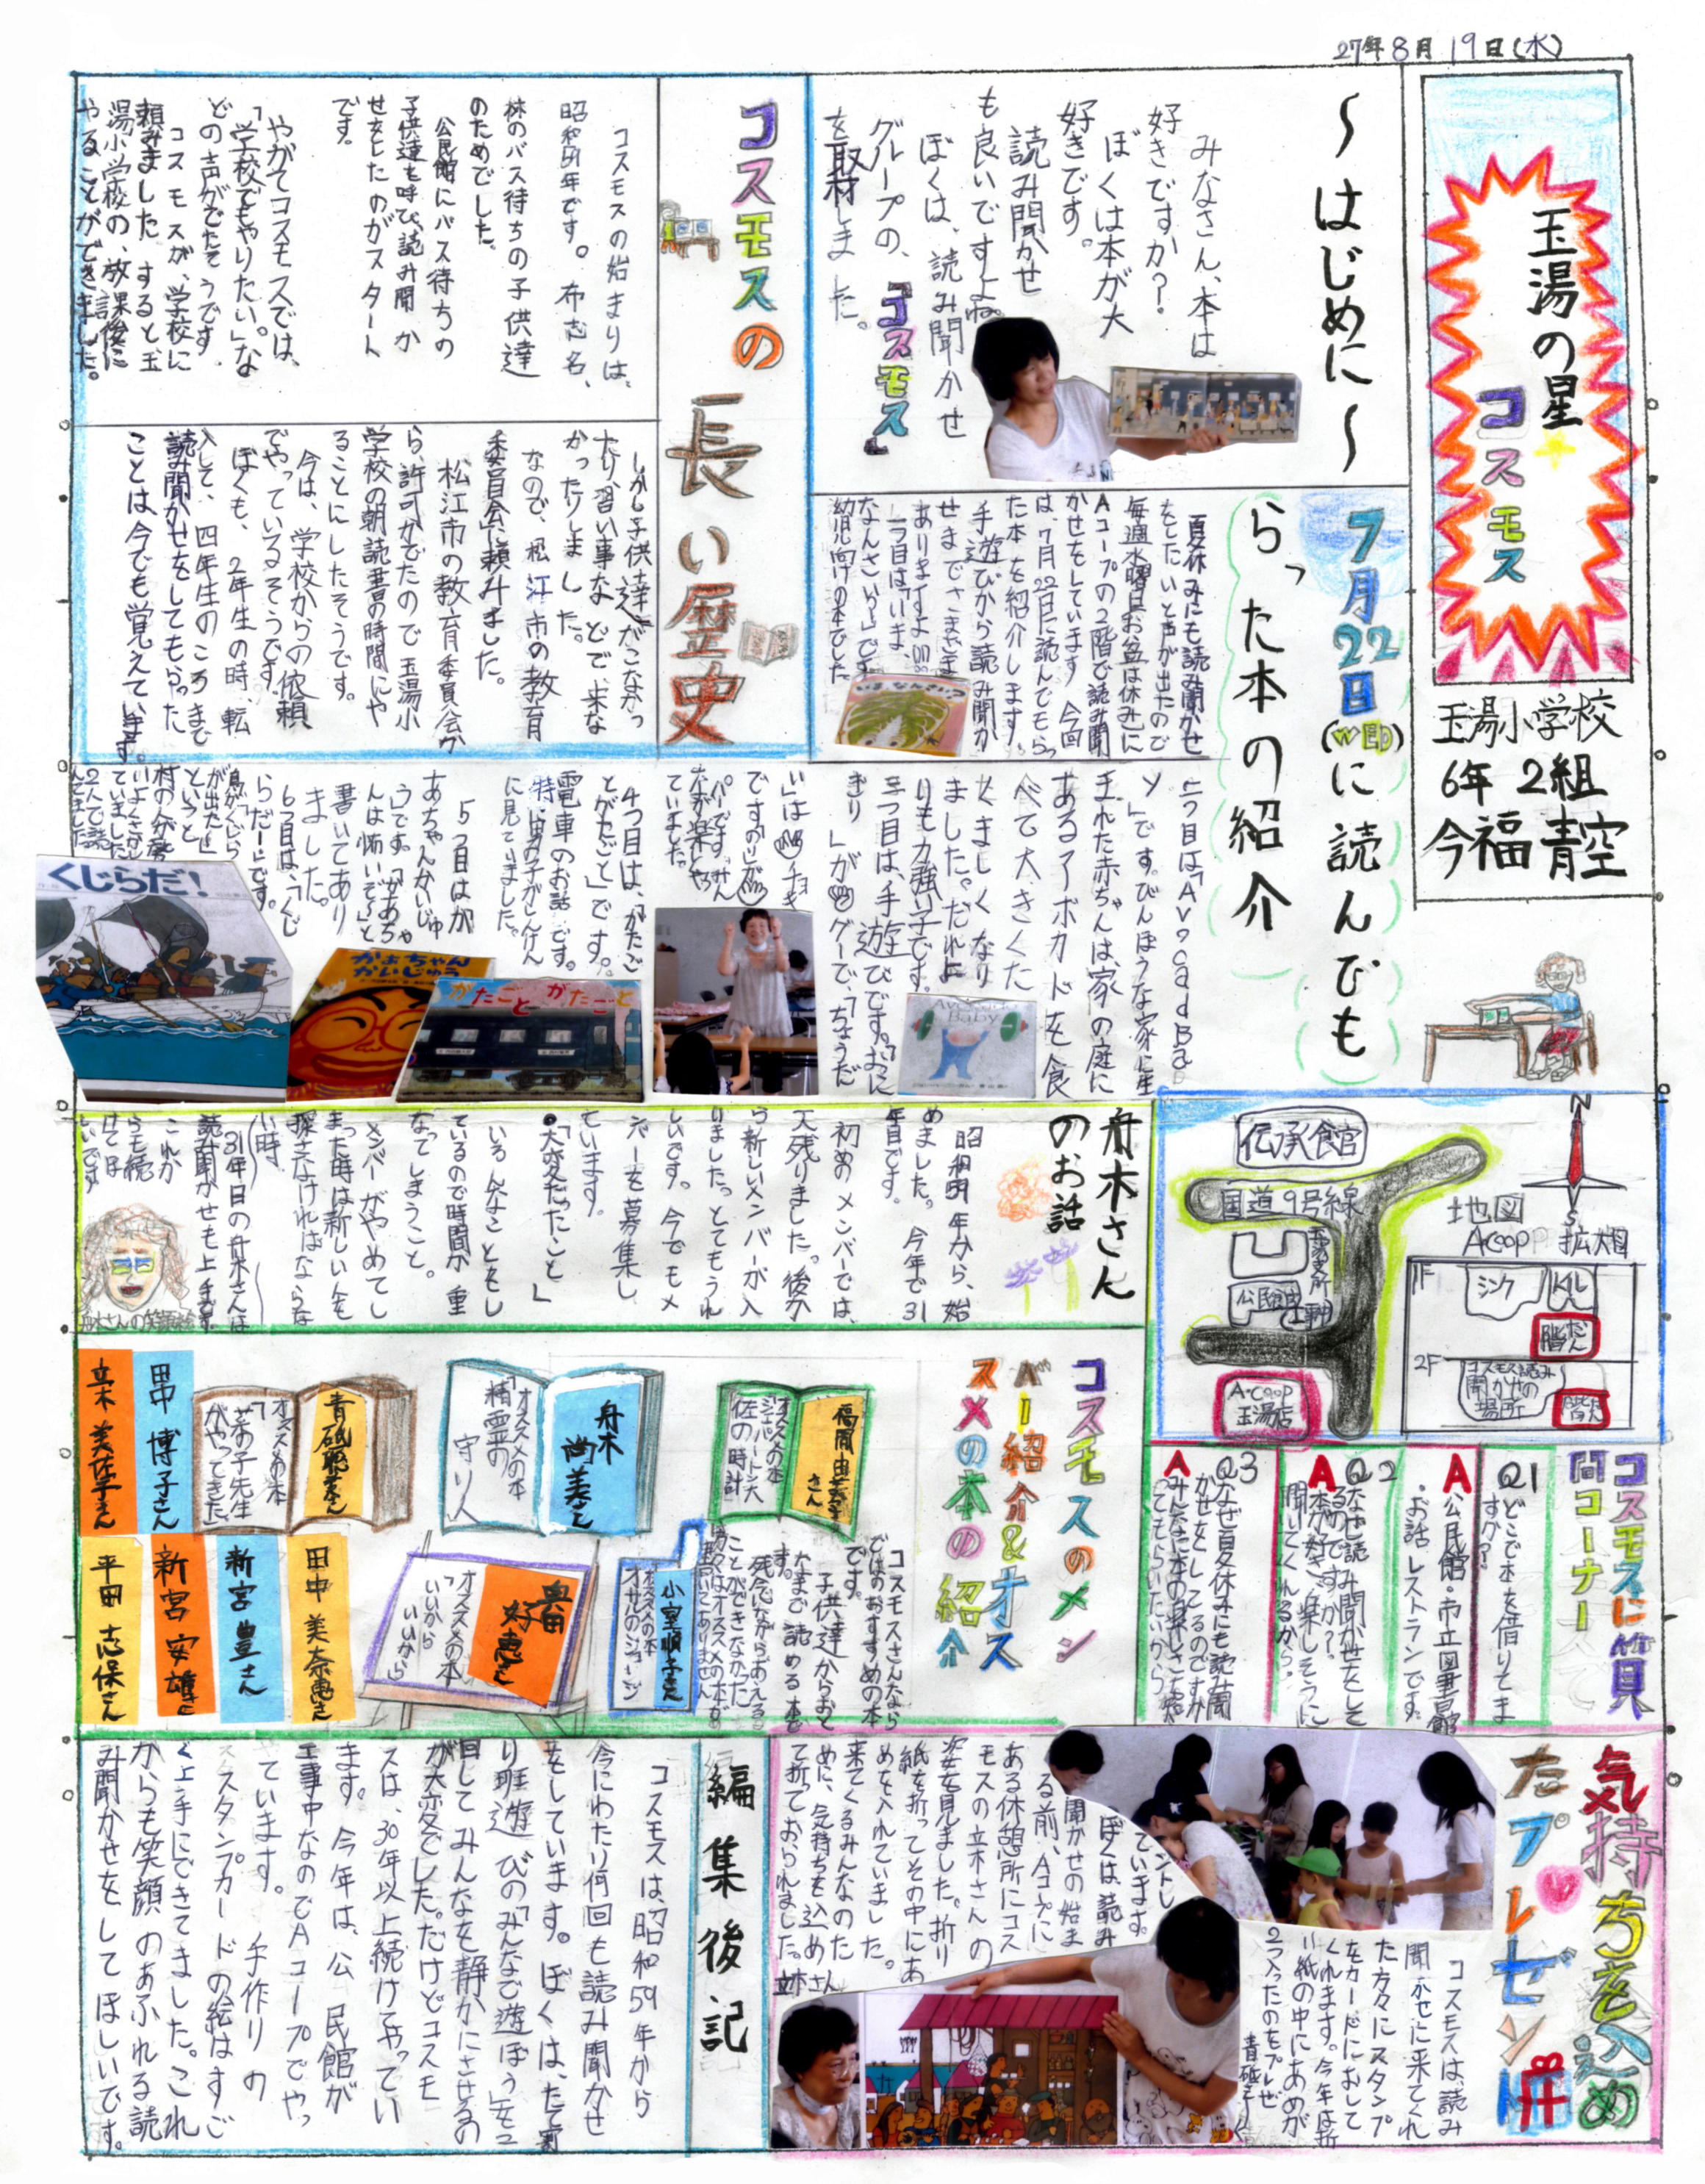 27年8月19日(水)
玉湯の星
コスモス
玉湯小学校
6年 2組
今福 青空
～はじめに～
みなさん、本は
好きですか?
ぼくは本が大
好きです。
読み聞かせ
も良いですよね。
ぼくは、読み聞かせ
グループの、「コスモス」
を取材しました。
コスモスの長い歴史
コスモスの始まりは、
昭和59年です。布志名、
林のバス待ちの子供達
のためでした。
公民館にバス待ちの
子供達を呼び、読み聞か
せをしたのがスタート
です。
やがてコスモスでは、
「学校でもやりたい。」な
どの声がでたそうです。
コスモスが、学校に
頼みました。すると玉
湯小学校の、放課後に
やることができました。
しかし子供達がこなかっ
たり習い事などで、来な
かったりしました。
なので、松江市の教育
委員会に頼みました。
松江市の教育委員会か
ら、許可がでたので玉湯小
学校の朝読書の時間にや
ることにしたそうです。
今は、学校からの依頼
でやっているそうです。
ぼくも、2年生の時、転
入して、四年生のころまで
読み聞かせをしてもらった
ことは今でも覚えています。
7月22日(WED)に読んでも
らった本の紹介
夏休みにも読み聞かせ
をしたいと声が出たので
毎週水曜日お盆は休みに
Aコープの2階で読み聞
かせをしています。今回
は、7月22日に読んでもらっ
た本を紹介します。
手遊びから読み聞か
せまでさまざま
ありますよ。
一つ目は、「いま、
なんさい」です。
幼児向けの本でした
いまなんさい?
二つ目は「Avocad Ba
y」です。びんぼうな家に産
まれた赤ちゃんは、家の庭に
あるアボカドを食
べて大きくた
くましくなり
ました。だれよ
りも力強い子です。
三つ目は、手遊びです。「おに
ぎり」がグーで、「ちょうだ
い」はチョキ
ですの「いが
パーです。みん
なが楽しくやっ
ていました。
4つ目は、「がたご
とがたごと」です。
電車のお話です。
特に男の子がしんけん
に見ていました。
5つ目はが
あちゃんかいじゅ
う」です。「があちゃ
んは怖いぞ～」と
書いてあり
ました。
6つ目は、「くじ
らだー」です。
Avocado Baby
がたごと がたごと
かあちゃん かいじゅう
くじらだ!
舟木さんのお話
昭和59年から、始
めました。今年で31
年目です。
初めのメンバーでは、
2人残りました。後か
ら新しいメンバーが入
りました。とてもうれ
しいです。今でもメ
ンバーを募集し
ています。
「大変だったこと」
いろんなこともし
ているので時間が重
なってしまうこと。
メンバーがやめてし
まった時は新しい人を
探さなければならな
い時
31年目の舟木さんは
読み聞かせも上手です
これか
らも続
けてほ
しいです
舟木さんの笑顔の絵
伝承館
国道9号線
公民館
A・Coop
玉湯店
N
S
地図
Acoop 拡大図
1F
シンク
トイレ
階だん
2F
コスモス読み
聞かせの
場所
階だん
コスモスに質
問コーナー
Q1
どこで本を借りてま
すか?
A
公民館・市立図書館
・お話レストランです。
Q2
なぜ読み聞かせをして
るのですか?
A
本が好き、楽しそうに
聞いてくれるから。
Q3
なぜ夏休みにも読み聞
かせをしてるのですか
A
みんなに本の楽しさを知
ってもらいたいから
コスモスのメン
バー紹介&オス
スメの本の紹介
コスモスさんなら
ではのおすすめの本
です。
子供達からおと
なまで読める本で
す。
残念ながらあえる
ことができなかった
方々はオススメの本が
書いてありません
福間由美子さん
オススメの本
ジェパートン大
佐の時計
舟木尚美さん
オススメの本
「精霊の
守り人
青砥聡美さん
オススメの本
「菜の子先生
がやってきた
小室順子さん
オススメの本
オサルのジョージ
奥田好恵さん
オススメの本
「いいから
いいから」
田中 博子さん
立木 美佐子さん
田中 美奈恵さん
新宮 豊さん
新宮 安雄さん
平田 志保さん
気持ちを込め
たプレゼント
コスモスは、読み
聞かせに来てくれ
た方々にスタンプ
をカードにおして
くれます。今年は折
り紙の中にあめが
2つ入ったのをプレゼ
ントし
ています。
ぼくは、読み
聞かせの始ま
る前、Aコープに
ある休憩所にコス
モスの立木さんの
姿を見ました。折り
紙を折ってその中にあ
めを入れていました。
来てくるみんなのた
めに、気持ちを込め
て折っておられました。
立木さん
編集後記
コスモスは、昭和59年から
今にわたり何回も読み聞かせ
をしています。ぼくは、たて割
り班遊びの「みんなで遊ぼう」を2
回してみんなを静かにさせるの
が大変でした。だけどコスモ
スは、30年以上続けてやってい
ます。今年は、公民館が
工事中なのでAコープでやっ
ています。手作りの
スタンプカードの絵はすご
く上手にできてました。これ
からも笑顔のあふれる読
み聞かせをしてほしいです。